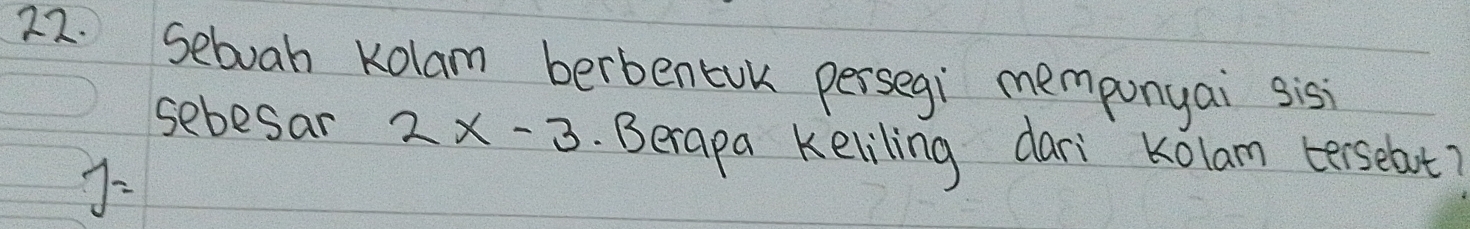 22. Sebuah kolam berbentuk persegi mempunyai sisi
sebesar 2x - 3. Berapa keliling dari kolam tersebut?
J=